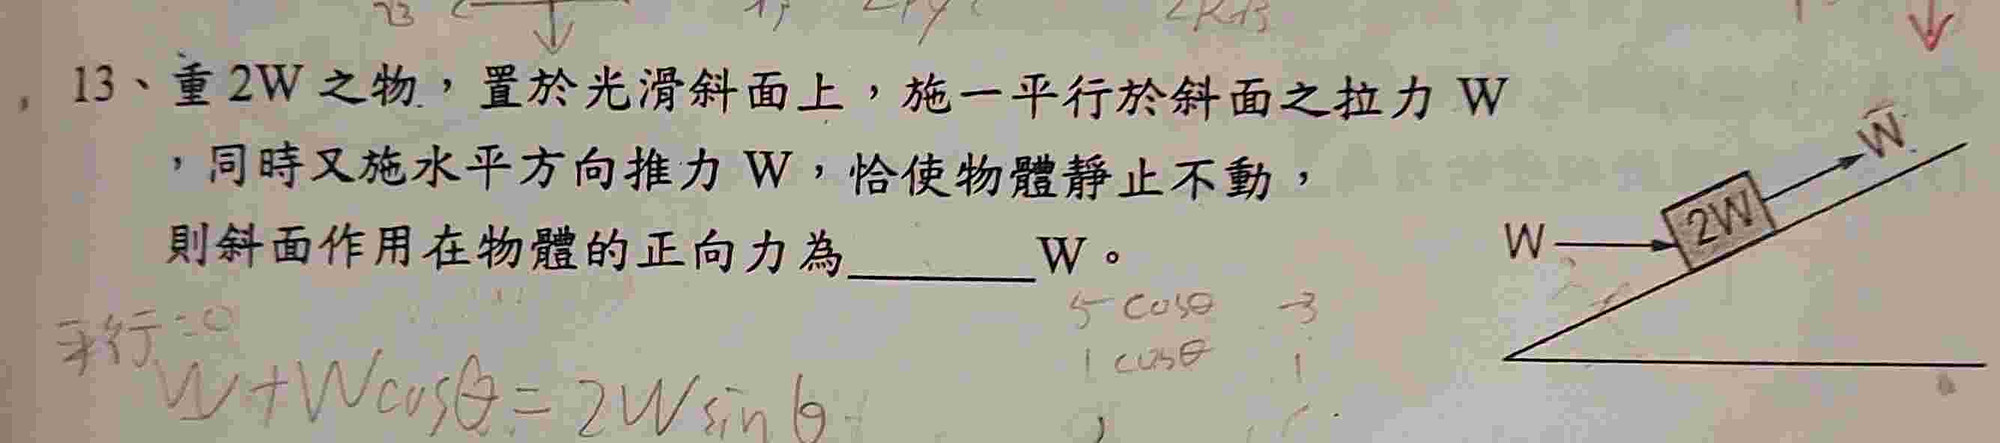 13、重 2W 之物，置於光滑斜面上，施一平行於斜面之拉力 W
，同時又施水平方向推力 W，恰使物體靜止不動，
則斜面作用在物體的正向力為______W。
W
2W
W
5 cosθ -3
1 cosθ 1
平行=0
W+Wcosθ=2Wsinθ